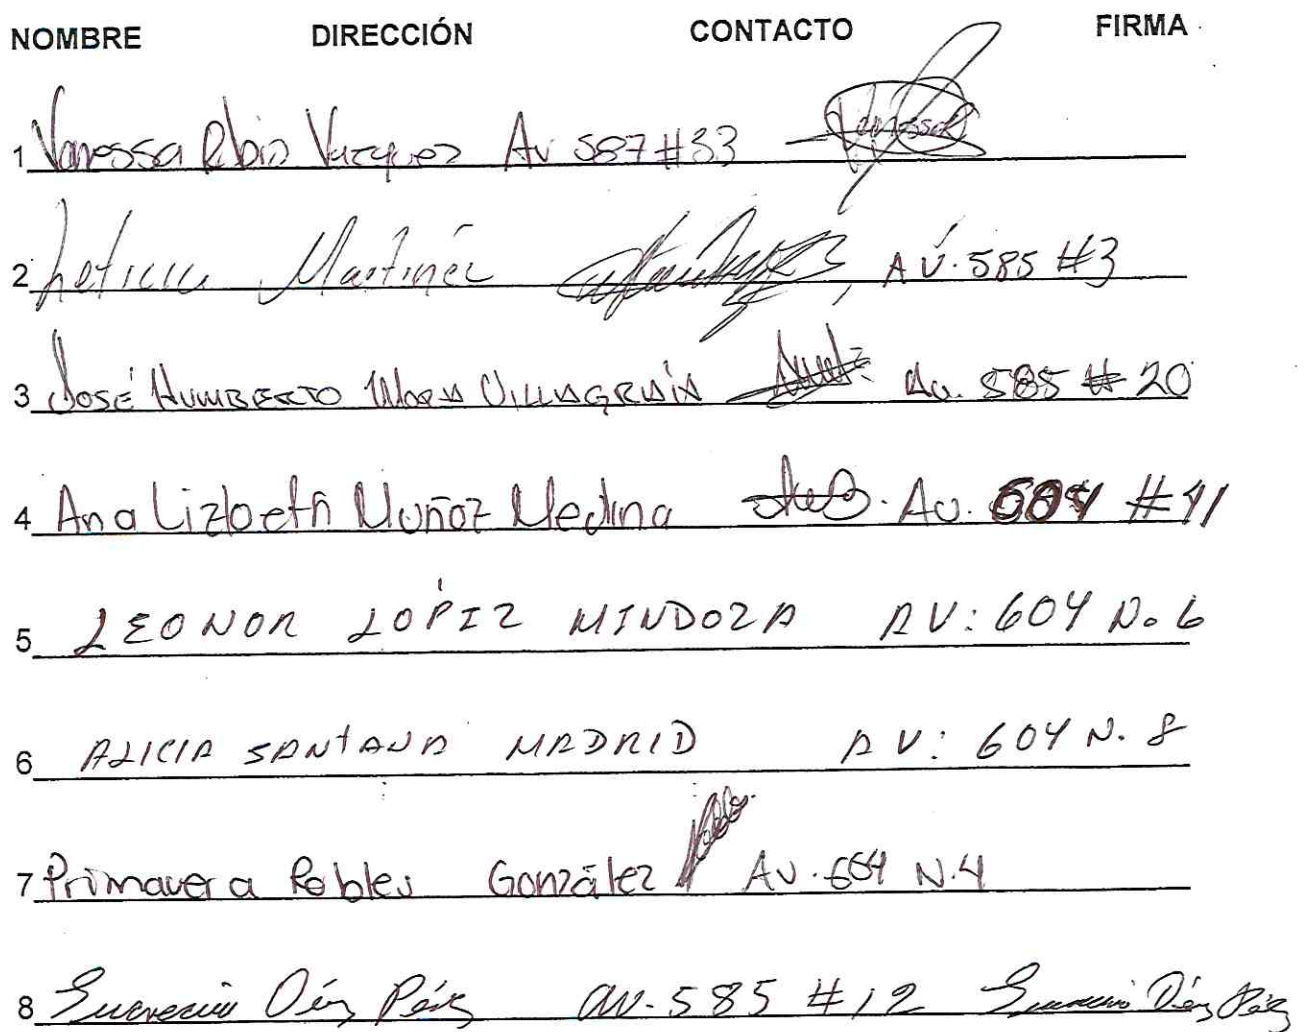 NOMBRE DIRECCIÓN CONTACTO FIRMA
1 Vanessa Rubio Vazquez Av 587 #33 Vanessa
2 Leticia Martínez AV. 585 #3
3 José HUMBERTO MORA VILLAGRÁN Av. 585 # 20
4 Ana Lizbeth Muñoz Medina Av. 604 #41
5 LEONOR LOPEZ MENDOZA AV: 604 No 6
6 ALICIA SANTANA MADRID AV: 604 N. 8
7 Primavera Robles González Av. 604 N.4
8 Díaz Pérez av. 585 #12 Díaz Pérez